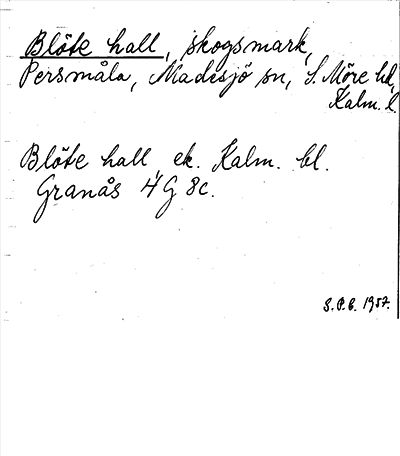 Blöte hall, skogsmark,
Persmåla, Madesjö sn, S. Möre hd,
Kalm. l.
Blöte hall, ek. Kalm. bl.
Granås 4G 8c.
S.P.B. 1957.